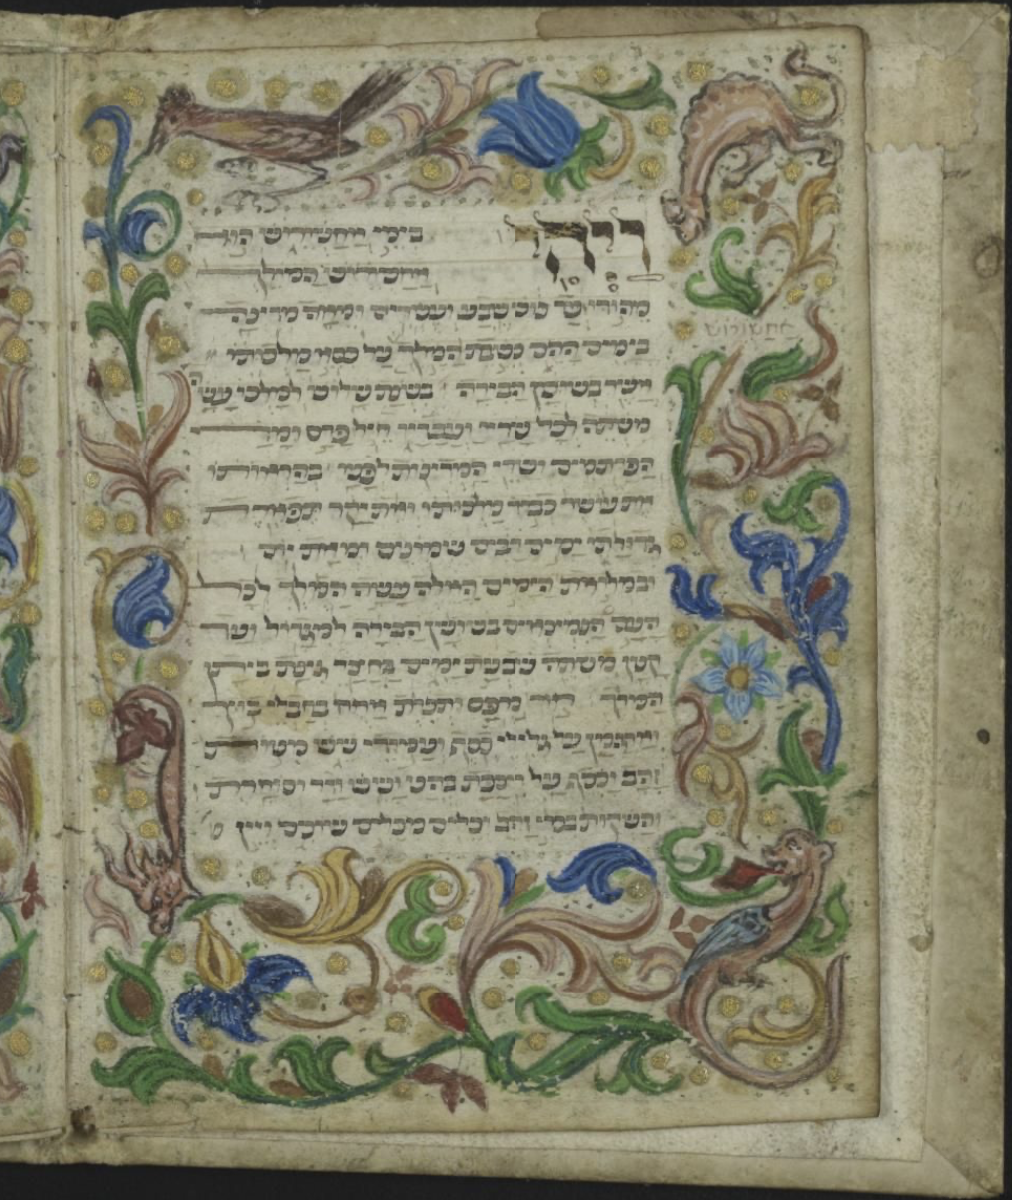 ויהי בימי אחשורוש הוא
אחשורוש המולך
מהודו ועד כוש שבע ועשרים ומאה מדינה
אחשורוש
בימים ההם כשבת המלך על כסא מלכותו
אשר בשושן הבירה בשנת שלוש למלכו עשה
משתה לכל שריו ועבדיו חיל פרס ומדי
הפרתמים ושרי המדינות לפניו בהראותו
את עושר כבוד מלכותו ואת יקר תפארת
גדולתו ימים רבים שמונים ומאת יום
ובמלואת הימים האלה עשה המלך לכל
העם הנמצאים בשושן הבירה למגדול ועד
קטן משתה שבעת ימים בחצר גינת ביתן
המלך חור כרפס ותכלת אחוז בחבלי בוץ
וארגמן על גלילי כסף ועמודי שש מטות
זהב וכסף על רצפת בהט ושש ודר וסחרת
והשקות בכלי זהב וכלים מכלים שונים ויין